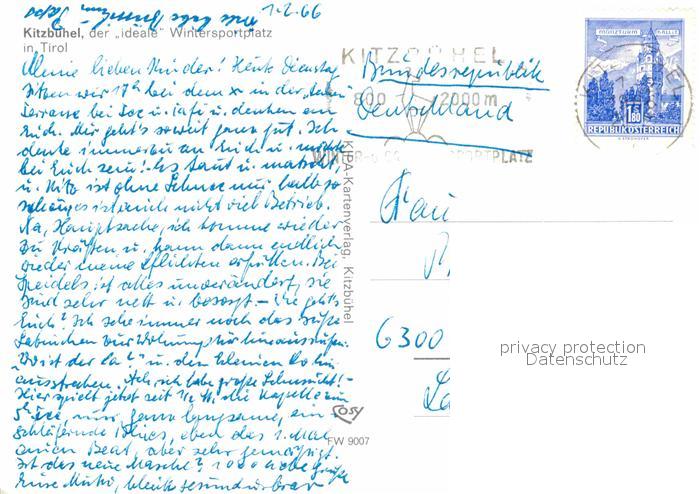 1-2.66
Kitzbühel, der „ideale" Wintersportplatz
in Tirol
Meine lieben Kinder! Heute Dienstag
sitzen wir 17h bei dem x in der
Terrasse bei u. Café u. denken an
Euch. Mir geht's soweit ganz gut. Ich
denke immerzu an Euch u. möchte
bei Euch sein! Es taut u. matscht
u. Kitz ist ohne Schnee nur halb so
schönes ist auch nicht viel Betrieb.
Na, Hauptsache, ich komme wieder
zu Kräften u. kann dann endlich
wieder meine Pflichten erfüllen. Bei
Speidels ist alles unverändert, sie
sind sehr nett u. besorgt. – Wie geht's
Euch? Ich sehe immer noch das süße
zur Wohnungstür hinausrufen.
Wo ist der u. den kleinen
ausstrecken. Ach, ich habe große Sehnsucht! -
Hier spielt jetzt seit die Kapelle zum
5h nur ganz langsame, ein-
schläfernde Blues, eben das 1. Mal
einen Beat, aber sehr gemäßigt.
Ist das neue Masche? 1000 liebe Grüße
Eure Mutti, bleibt gesund u. brav
KIPA-Kartenverlag, Kitzbühel
COSY
FW 9007
KITZBÜHEL
800 2000 m
WINTER- u. SPORTPLATZ
MÜNZTURM HALL I.T.
S 1.80
REPUBLIK ÖSTERREICH
Bundesrepublik
Deutschland
Frau
6300
privacy protection
Datenschutz